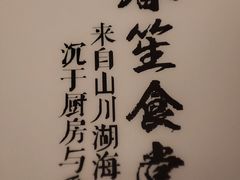 笙食堂
来自山川湖海
沉于厨房与